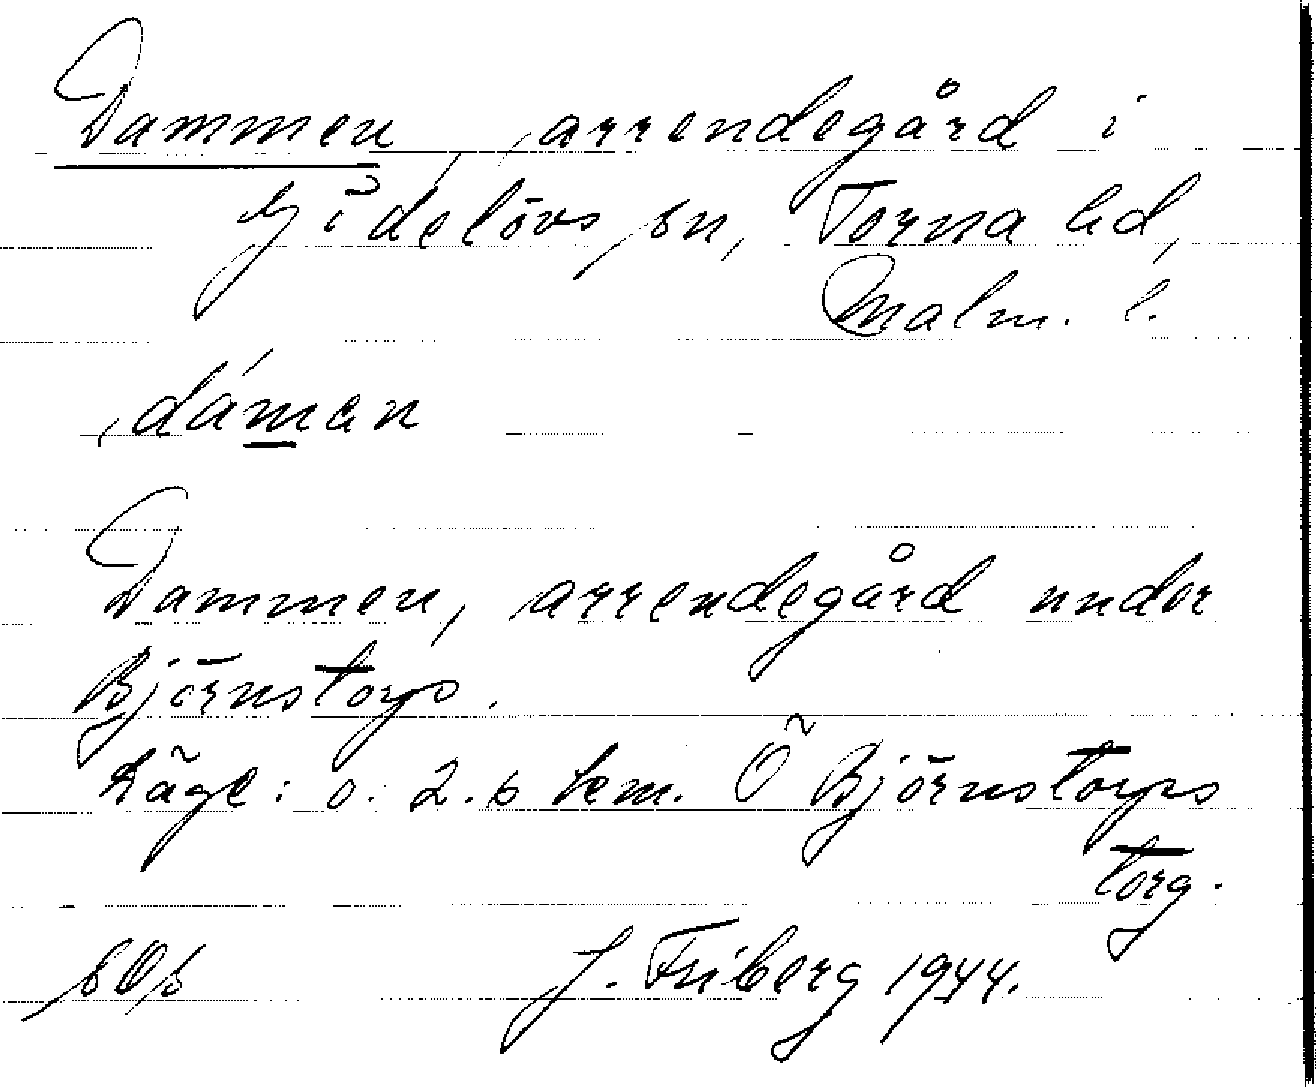 Dammen, arrendegård i
Gödelövs sn, Torna hd,
Malm. l.
dámen
Dammen, arrendegård under
Björnstorps.
Läge: o. 2.6 km. Ö Björnstorps
torg.
J. Friberg 1944.